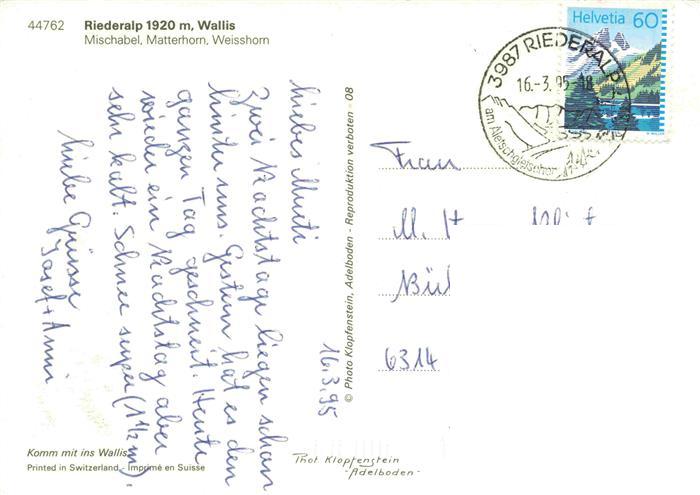 44762 Riederalp 1920 m, Wallis
Mischabel, Matterhorn, Weisshorn
Helvetia 60
3987 RIEDERALP
16.-3.95-18
am Aletschgletscher
16.3.95
Liebes Mutti
Zwei Prachtstage liegen schon
hinter uns. Gestern hat es den
ganzen Tag geschneit. Heute
wieder ein Prachtstag aber
sehr kalt. Schnee super (1 1/2 m).
Liebe Grüsse
Josef + Anni
© Photo Klopfenstein, Adelboden - Reproduktion verboten - 08
Frau
M.
6314
Komm mit ins Wallis
Printed in Switzerland - Imprimé en Suisse
Phot. Klopfenstein
- Adelboden -